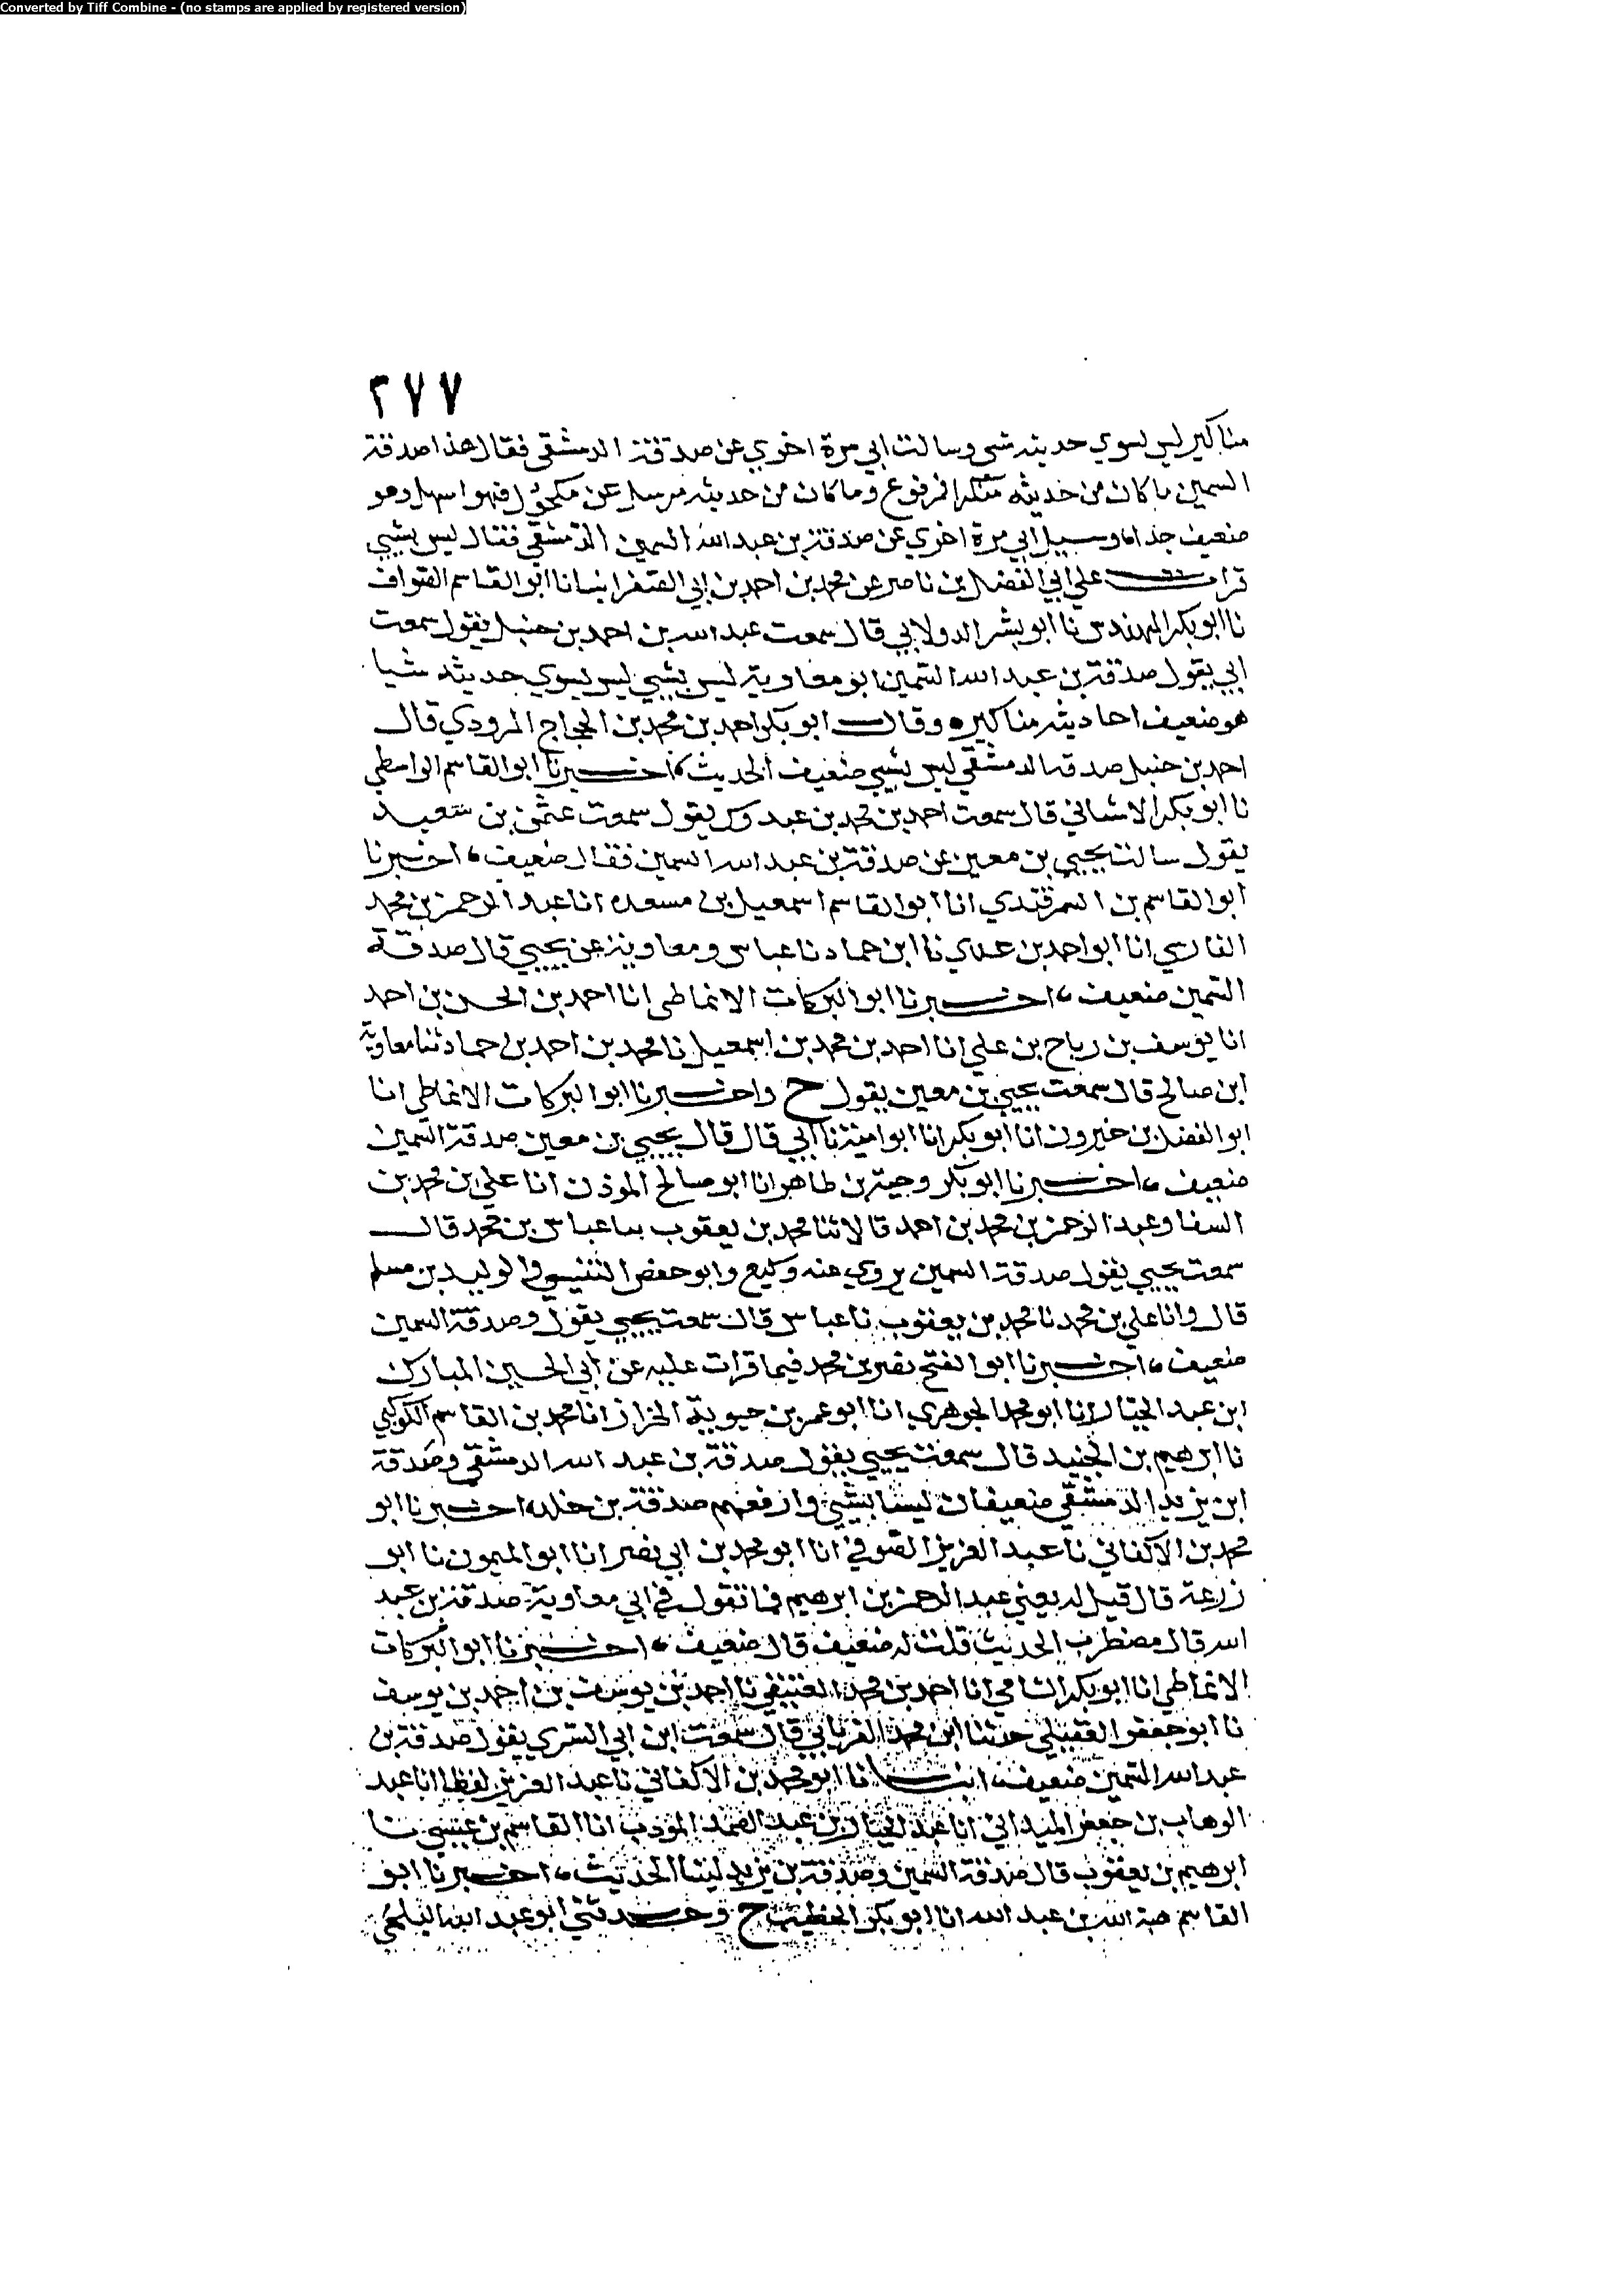 Converted by Tiff Combine - (no stamps are applied by registered version)
٢٧٧
مناكير ليس يسوي حديثه شي وسالت ابي مرة اخري عن صدقة الدمشقي فقال هذا صدقة
السمين ما كان من حديثه منكرا مرفوع وما كان من حديثه مرسل عن مكحول فهو اسهل وهو
ضعيف جدا وسيل ابي مرة اخري عن صدقة بن عبد الله السمين الدمشقي فقال ليس بشيي
قرات علي ابي الفضل بن ناصر عن محمد بن احمد بن ابي الصقر انبانا ابو القاسم الصواف
نا ابو بكر المهندس نا ابو بشر الدولابي قال سمعت عبد الله بن احمد بن حنبل يقول سمعت
ابي يقول صدقة بن عبد الله السمين ابو معاوية ليس بشيي ليس يسوي حديثه شيا
هو ضعيف احاديثه مناكيره وقال ابو بكر احمد بن محمد بن الحجاج المرودي قال
احمد بن حنبل صدقه الدمشقي ليس بشيي ضعيف الحديث، اخبرنا ابو القاسم الواسطي
نا ابو بكر الاشناني قال سمعت احمد بن محمد بن عبدوس يقول سمعت عثمن بن سعيد
يقول سالت يحيي بن معين عن صدقة بن عبد الله السمين فقال ضعيف، اخبرنا
ابو القاسم بن السمرقندي انا ابو القاسم اسمعيل بن مسعده انا عبد الرحمن بن محمد
الفارسي انا ابو احمد بن عدي نا ابن حماد نا عباس ومعاوية عن يحيي قال صدقة
السمين ضعيف، اخبرنا ابو البركات الانماطي انا احمد بن الحسن بن احمد
انا يوسف بن رباح بن علي انا احمد بن محمد بن اسمعيل نا محمد بن احمد بن حماد ثنا معاوية
ابن صالح قال سمعت يحيي بن معين يقول ح واخبرنا ابو البركات الانماطي انا
ابو الفضل بن خيرون انا ابو بكر انا ابو امية نا ابي قال قال يحيي بن معين صدقة السمين
ضعيف، اخبرنا ابو بكر وجيه بن طاهر انا ابو صالح الموذن انا علي بن محمد بن
السقا وعبد الرحمن بن محمد بن احمد قالا ثنا محمد بن يعقوب نا عباس بن محمد قال
سمعت يحيي يقول صدقة السمين يروي عنه وكيع وابو حفص التنيسي والوليد بن مسلم
قال وانا علي بن محمد نا محمد بن يعقوب نا عباس قال سمعت يحيي يقول وصدقة السمين
ضعيف، اخبرنا ابو الفتح نصر بن محمد فيما قرات عليه عن ابي الحسين المبارك
ابن عبد الجبار انا ابو محمد الجوهري انا ابو عمر بن حيوية الخزاز انا محمد بن القاسم الكوكبي
نا ابرهيم بن الجنيد قال سمعت يحيي يقول صدقة بن عبد الله الدمشقي وصدقة
ابن يزيد الدمشقي ضعيفان ليسا بشيي وارفعهم صدقة بن خلده اخبرنا ابو
محمد بن الاكفاني نا عبد العزيز الصوفي انا ابو محمد بن ابي نصر انا ابو الميمون نا ابو
زرعة قال قيل له يعني عبد الرحمن بن ابرهيم فما تقول في ابي معاوية صدقة بن عبد
الله قال مضطرب الحديث قلت له ضعيف قال ضعيف، اخبرنا ابو البركات
الانماطي انا ابو بكر الشامي انا احمد بن محمد العتيقي نا احمد بن يوسف بن احمد بن يوسف
نا ابو جعفر العقيلي حدثنا ابن محمد الفريابي قال سمعت ابن ابي السري يقول صدقة بن
عبد الله السمين ضعيف، انبانا ابو محمد بن الاكفاني نا عبد العزيز لفظا انا عبد
الوهاب بن جعفر الميداني انا عبد الجبار بن عبد الصمد المودب انا القاسم بن عيسي نا
ابرهيم بن يعقوب قال صدقة السمين وصدقة بن يزيد لينا الحديث، اخبرنا ابو
القاسم هبة الله بن عبد الله انا ابو بكر الخطيب ح وحدثني ابو عبد الله البلخي